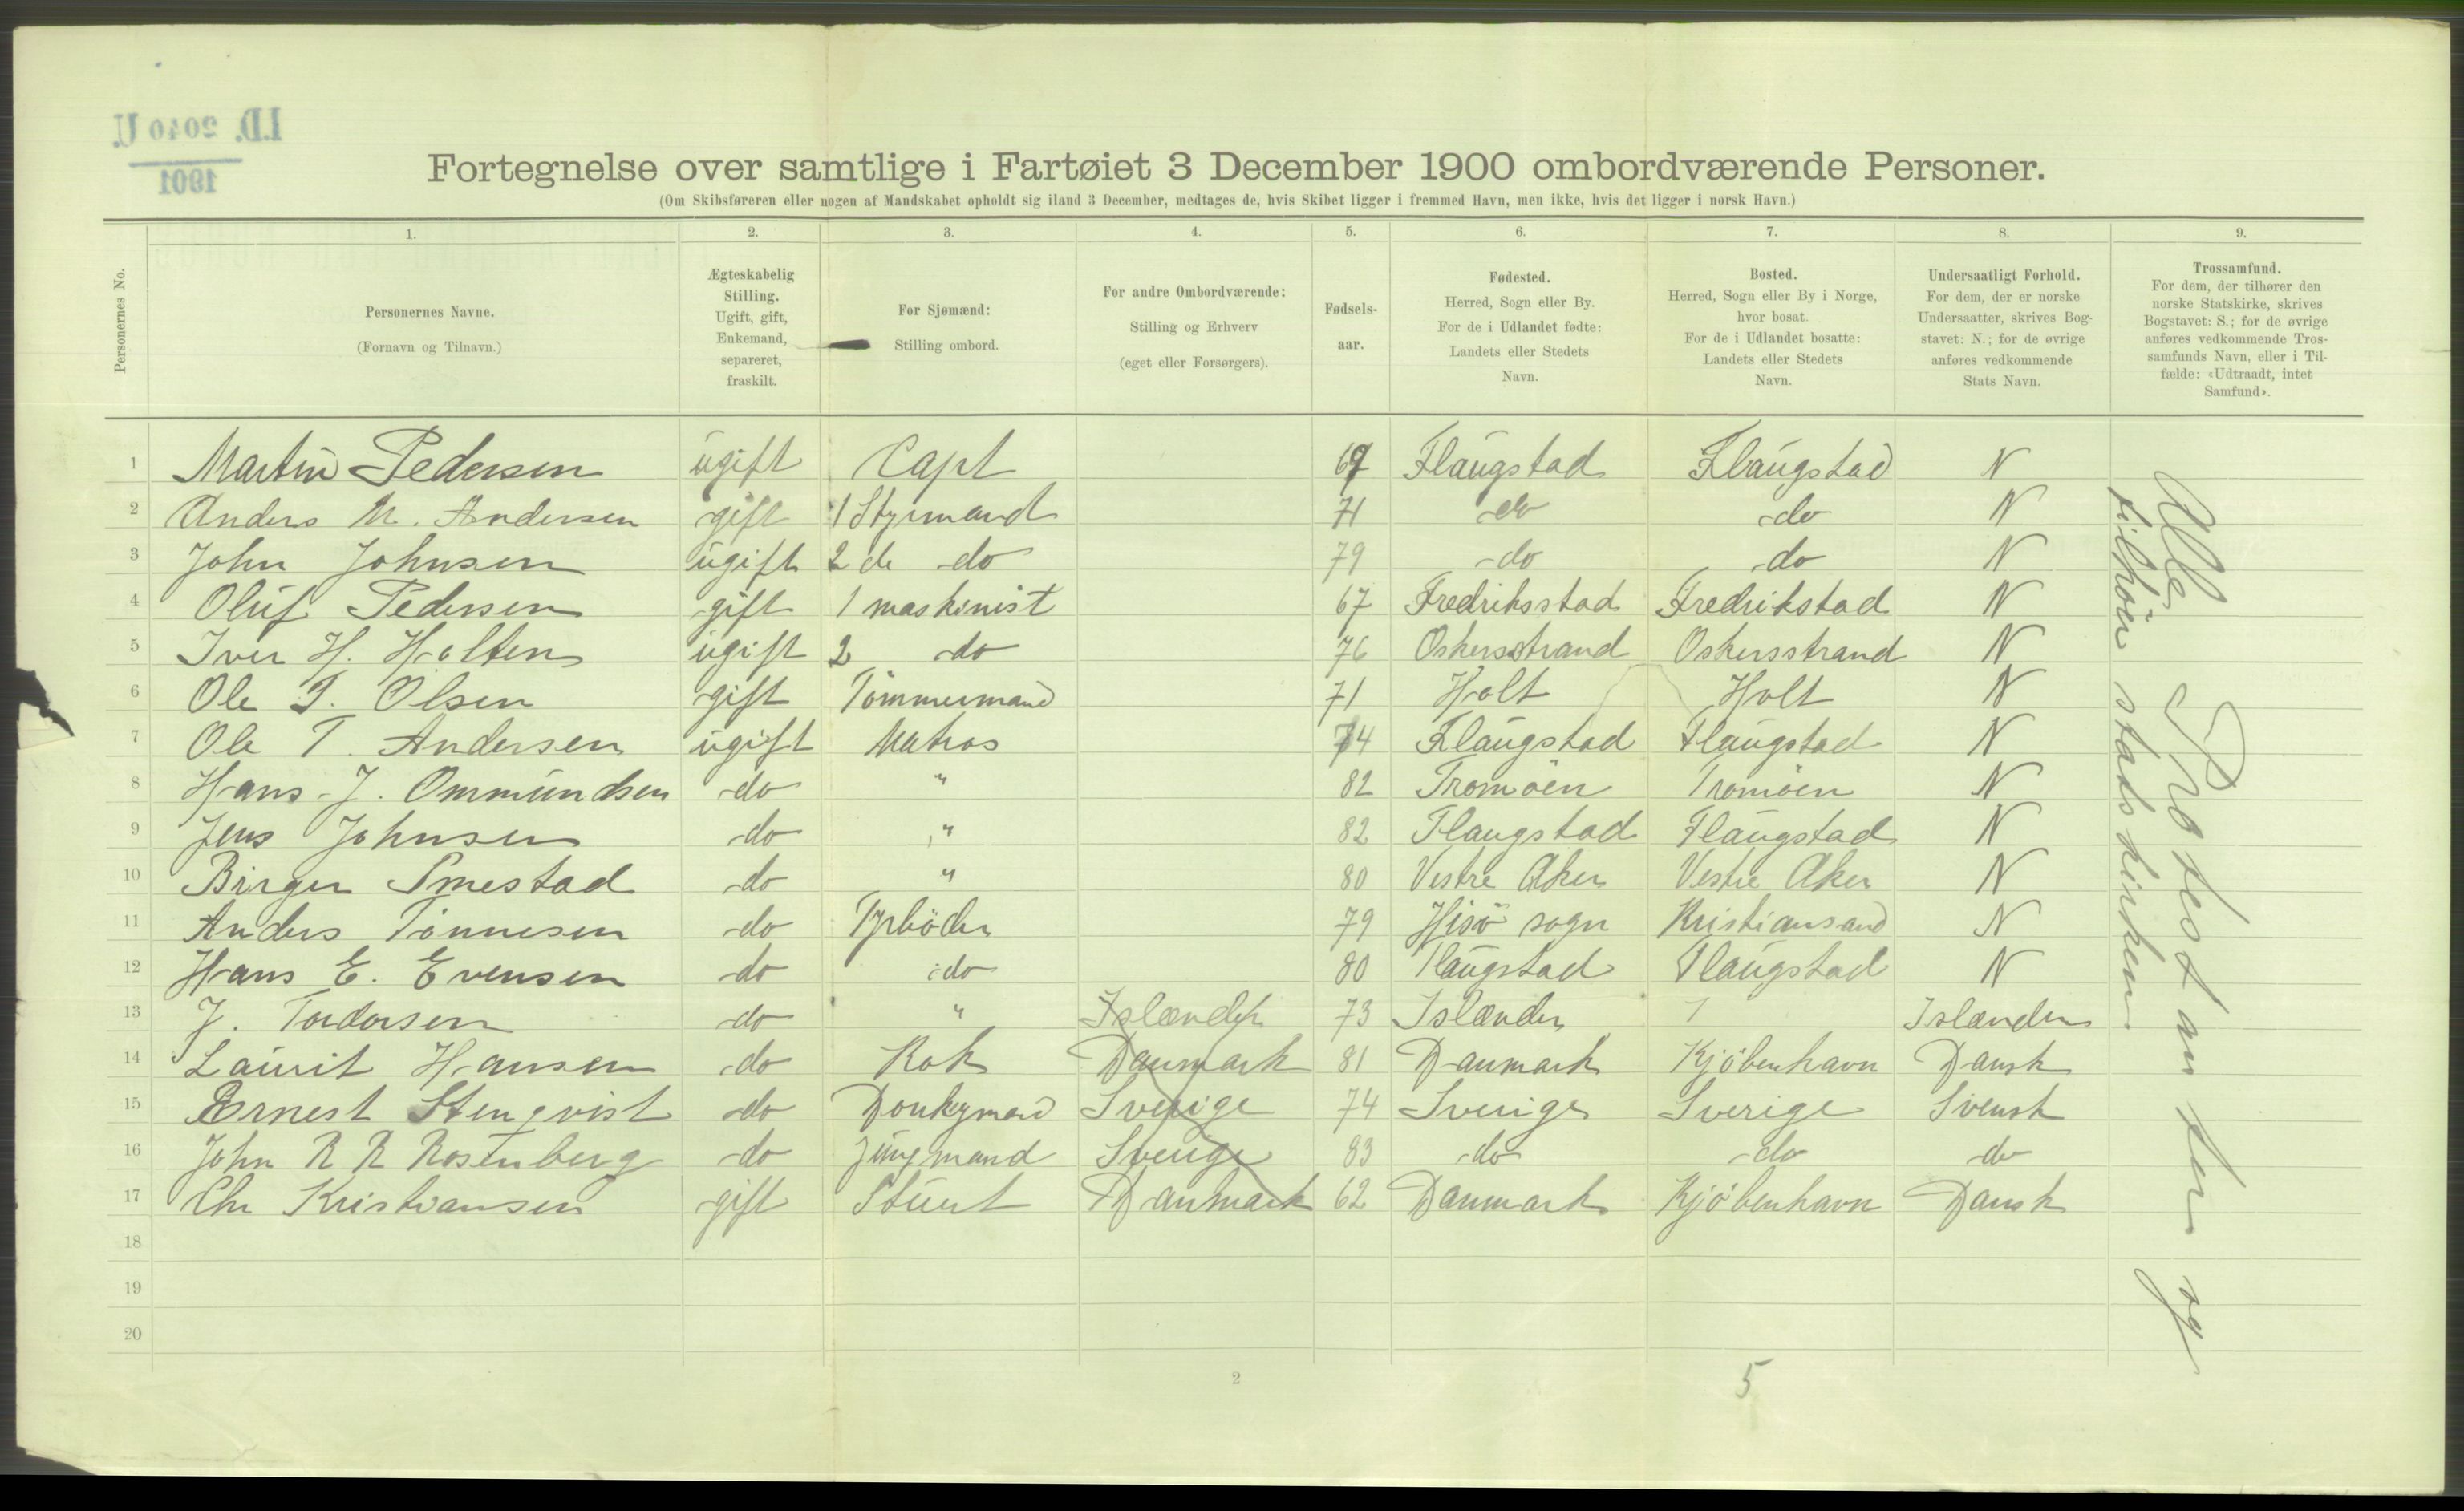 I.D. 2040 U.
1901
Fortegnelse over samtlige i Fartøiet 3 December 1900 ombordværende Personer.
(Om Skibsføreren eller nogen af Mandskabet opholdt sig iland 3 December, medtages de, hvis Skibet ligger i fremmed Havn, men ikke, hvis det ligger i norsk Havn.)
1. 2. 3. 4. 5. 6. 7. 8. 9.
Personernes No.
Personernes Navne.
(Fornavn og Tilnavn.)
Ægteskabelig
Stilling.
Ugift, gift,
Enkemand,
separeret,
fraskilt.
For Sjømænd:
Stilling ombord.
For andre Ombordværende:
Stilling og Erhverv
(eget eller Forsørgers).
Fødsels-
aar.
Fødested.
Herred, Sogn eller By.
For de i Udlandet fødte:
Landets eller Stedets
Navn.
Bosted.
Herred, Sogn eller By i Norge,
hvor bosat.
For de i Udlandet bosatte:
Landets eller Stedets
Navn.
Undersaatligt Forhold.
For dem, der er norske
Undersaatter, skrives Bog-
stavet: N.; for de øvrige
anføres vedkommende
Stats Navn.
Trossamfund.
For dem, der tilhører den
norske Statskirke, skrives
Bogstavet: S.; for de øvrige
anføres vedkommende Tros-
samfunds Navn, eller i Til-
fælde: «Udtraadt, intet
Samfund».
1 Martin Pedersen ugift Capt 67 Flaugstad Flaugstad N
2 Anders M. Andersen gift 1 Styrmand 71 do do N
3 John Johnsen ugift 2 de do 79 do do N
4 Oluf Pedersen gift 1 maskinist 67 Fredriksstad Fredrikstad N
5 Iver H. Holten ugift 2 do 76 Oskersstrand Oskersstrand N
6 Ole T. Olsen gift Tömmermand 71 Holt Holt N
7 Ole T. Andersen ugift Matros 74 Flaugstad Flaugstad N
8 Hans J. Ommundsen do " 82 Tromöen Tromöen N
9 Jens Johnsen do " 82 Flaugstad Flaugstad N
10 Birger Smestad do " 80 Vestre Aker Vestre Aker N
11 Anders Tönnesen do Fyrböder 79 Hisö sogn Kristiansand N
12 Hans E. Evensen do do 80 Flaugstad Flaugstad N
13 J. Tordarsen do " Islænder 73 Islænder Islænder
14 Laurit Hansen do Kok Danmark 81 Danmark Kjöbenhavn Dansk
15 Ernest Stenqvist do Donkeymand Sverige 74 Sverige Sverige Svensk
16 John R R Rosenberg do Jungmand Sverige 83 do do do
17 Chr Kristiansen gift Stuert Danmark 62 Danmark Kjöbenhavn Dansk
18
19
20
Alle Protestanter og
tilhöier stadskirken
2
5